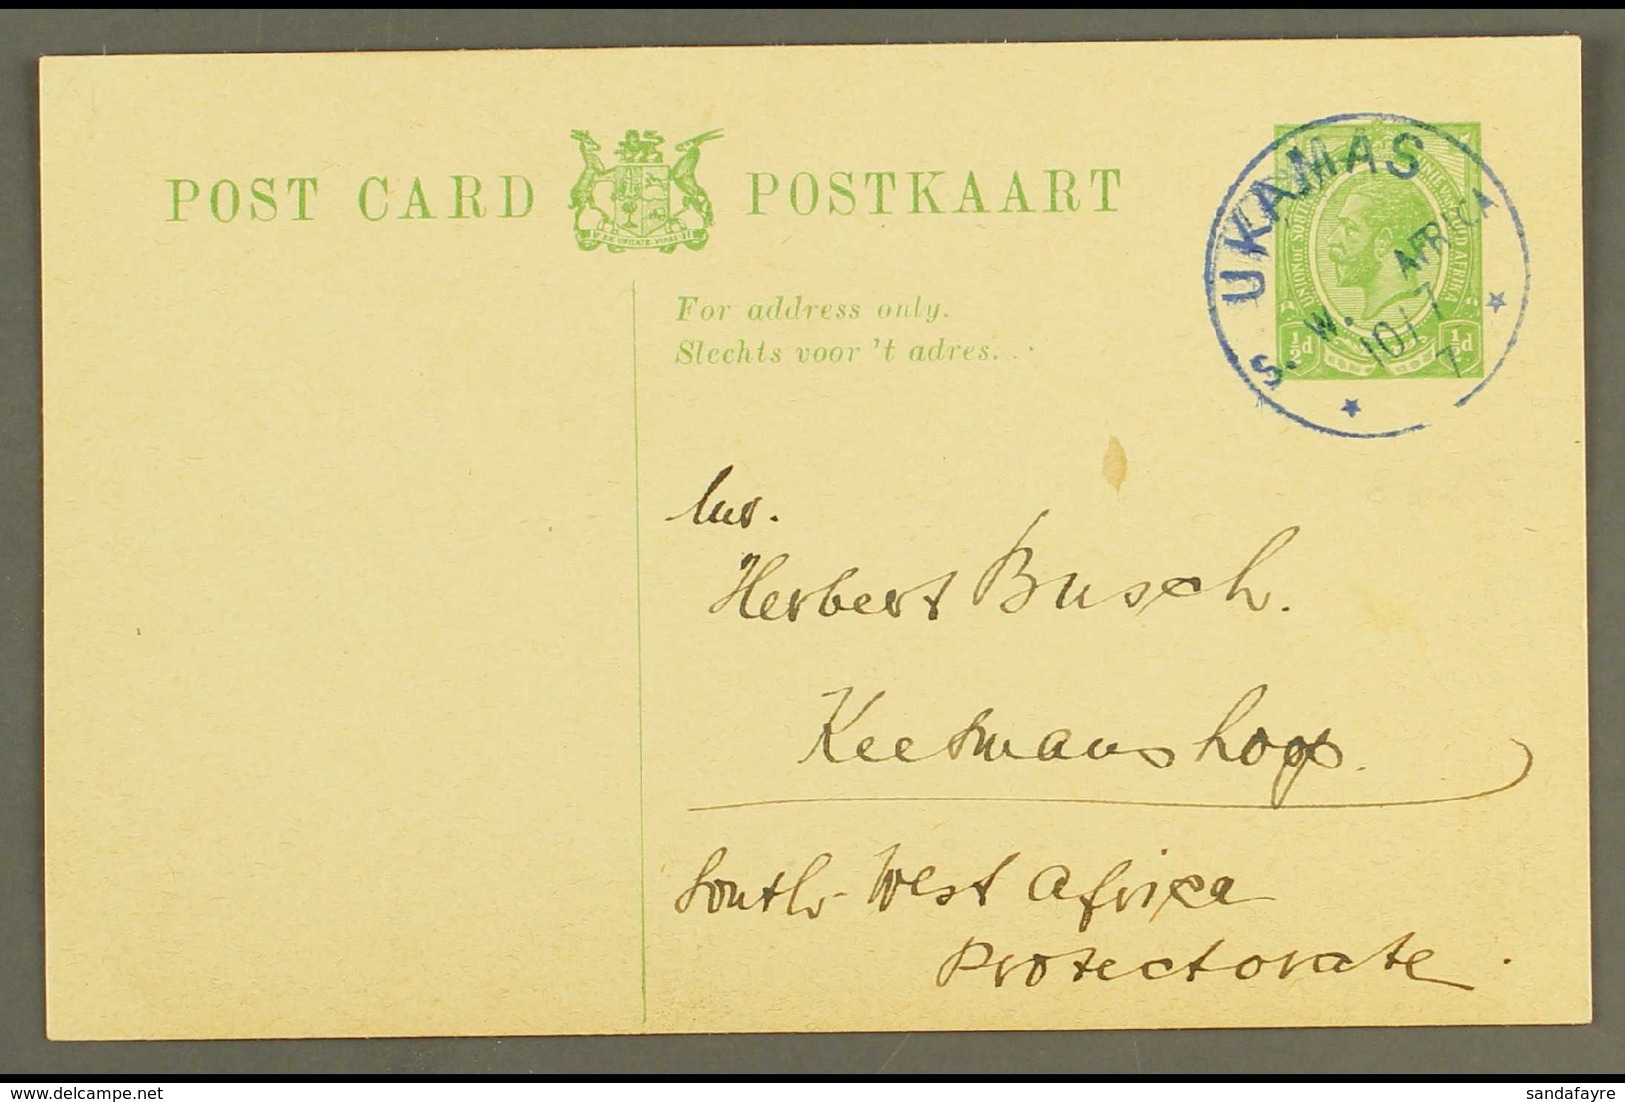 POST CARD POSTKAART
EX UNITATE VIRES
UNION OF SOUTH AFRICA UNIE VAN ZUID AFRIKA
½d ½d
UKAMAS
S. W. AFRICA
10/7
7
For address only.
Slechts voor 't adres.
Herbert Busch.
Keetmanshoop.
South-West Africa
Protectorate.
sandafayre